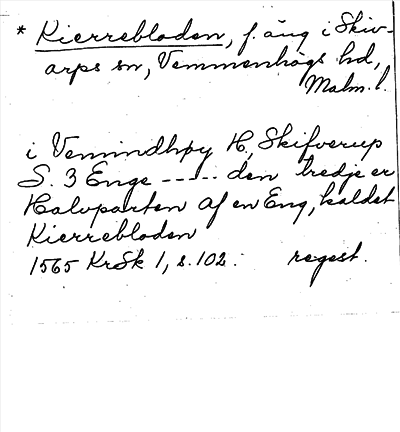 * Kierrebloden, f. äng i Skiv-
arps sn, Vemmenhögs hd,
Malm. l.
i Vemindhøy H., Skifverup
S. 3 Enge ----- den tredje er
Halvparten af en Eng, kaldet
Kierrebloden
1565 KrSk 1, s. 102. regest.